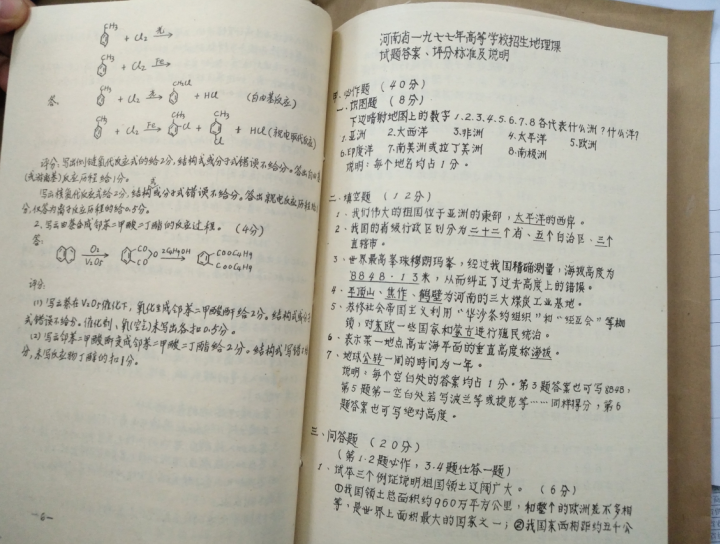 CH₃ + Cl₂ 光→
CH₃ + Cl₂ Fe→
答: CH₃ + Cl₂ 光→ CH₂Cl + HCl (自由基反应)
CH₃ + Cl₂ Fe→ CH₃ Cl + CH₃ Cl + HCl (亲电取代反应)
评分:写出侧链氯代反应式的给2分,结构式或分子式错误不给分。答出自由基
反应历程给1分。
写出核氯代反应式给2分,结构式或分子式错误不给分。答出亲电反应历程给
分,仅答为离子反应历程的给0.5分。
2、写出由萘合成邻苯二甲酸二丁酯的反应过程。(4分)
答:
O₂ V₂O₅ CO CO O 2C₄H₉OH COOC₄H₉ COOC₄H₉
评分:
(1) 写出萘在V₂O₅催化下,氧化生成邻苯二甲酸酐给2分。结构式或分子
式错误不给分。催化剂、氧(空气)未写出各扣0.5分。
(2) 写出邻苯二甲酸酐变成邻苯二甲酸二丁酯给2分。结构式写错不给
分,未写反应物丁醇的扣1分。
—6—
河南省一九七七年高等学校招生地理课
试题答案、评分标准及说明
甲、必作题 (40分)
一、填图题 (8分)
下边暗射地图上的数字1.2.3.4.5.6.7.8各代表什么洲?什么洋?
1.亚洲 2.大西洋 3.非洲 4.太平洋 5.欧洲
6.印度洋 7.南美洲或拉丁美洲 8.南极洲
说明:每个地名均占1分。
二、填空题 (12分)
1、我们伟大的祖国位于亚洲的东部,太平洋的西岸。
2、我国的省级行政区划分为二十二个省、五个自治区、三个
直辖市。
3、世界最高峯珠穆朗玛峯,经过我国精确测量,海拔高度为
8848·13米,从而纠正了过去高度上的错误。
4、平顶山、焦作、鹤壁为河南的三大煤炭工业基地。
5、苏修社会帝国主义利用“华沙条约组织”和“经互会”等枷
锁,对东欧一些国家和蒙古进行殖民统治。
6、表示某一地点高古海平面的垂直高度称海拔。
7、地球公转一周的时间为一年。
说明:每个空白处的答案均占1分。第3题答案也可写8848,
第5题第一空白处若写波兰等或捷克等……同样得分,第6
题答案也可写绝对高度。
三、问答题 (20分)
(第1.2题必作,3.4题任答一题)
1、试举三个例证说明祖国领土辽阔广大。 (6分)
①我国领土总面积约960万平方公里,和整个的欧洲差不多相
等,是世界上面积最大的国家之一;②我国东西相距约五千公